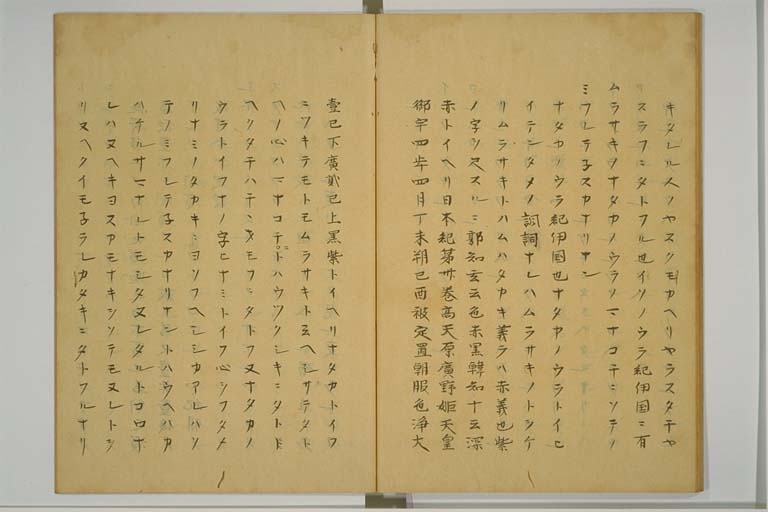 キタレル人ノヤスクモカヘリヤラスタチヤ
スラフニタトフル也イソノウラ紀伊国ニ有
ムラサキヲナタカノウラノマナコテニソテノ
ミフレテ子スカナリナン
ナタカノウラ紀伊国也ナタカノウラトイヒ
イテンタメノ諷詞ナレハムラサキノトツケ
リムラサキトハムハタカキ義ラハ赤義也紫
ノ字ヲ尺スルニ郭知玄云色赤黒韓知十云深
赤トイヘリ日本紀第卅巻高天原廣野姫天皇
御宇四年四月丁未朔己酉被定置朝服色浄大
壹已下廣貳已上黒紫トイヘリナタカトイフ
ニツキテモトモムラサキト云ヘシサラテタト
ヘソ心ハマナコチトハウツクシキニタトト
ヘクタテハテニオモフニタトフ又ナタカノ
ウラトイフナノ字ヒナミトイフ心シフタメ
リナミノタカキニヨソフヘシシカアレハソ
テノミフレテ子スカナリナントハウヘハカ
ハチルサマナレトモシタ又レタルトコロナ
レハ又ヘキヨスカモナキシソテモ又レトシ
リ又ヘクイモ子ラレカタキニタトフルナリ